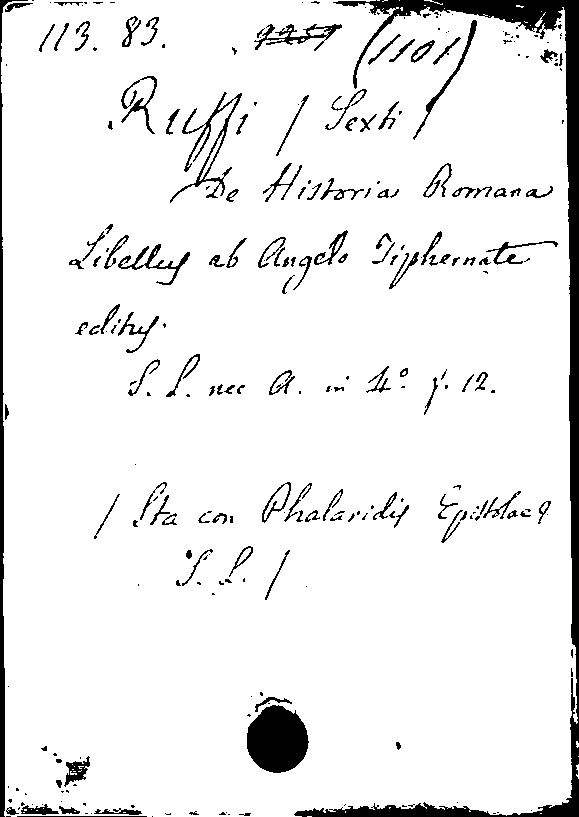 113. 83. 9259 (1101)
Ruffi / Sexti /
De Historia Romana
Libellus ab Angelo Tiphernate
editus.
S. L. nec A. in 4º f. 12.
/ Sta con Phalaridis Epistolae
S. L. /